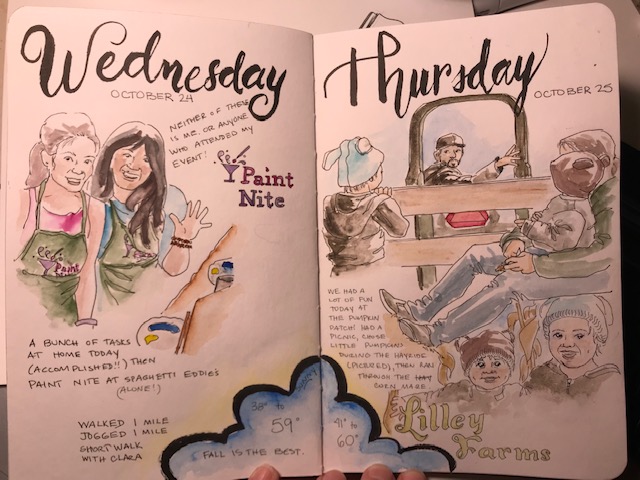 Wednesday
OCTOBER 24
NEITHER OF THESE
IS ME. OR ANYONE
WHO ATTENDED MY
EVENT!
Paint
Nite
Paint
A BUNCH OF TASKS
AT HOME TODAY
(ACCOMPLISHED!!) THEN
PAINT NITE AT SPAGHETTI EDDIE'S
(ALONE!)
WALKED 1 MILE
JOGGED 1 MILE
SHORT WALK
WITH CLARA
38° to
59°
FALL IS THE BEST.
Thursday
OCTOBER 25
WE HAD A
LOT OF FUN
TODAY AT
THE PUMPKIN
PATCH! HAD A
PICNIC, CHOSE
LITTLE PUMPKINS
DURING THE HAYRIDE
(PICTURED), THEN RAN
THROUGH THE HAY
CORN MAZE.
41° to
60°
Lilley
Farms